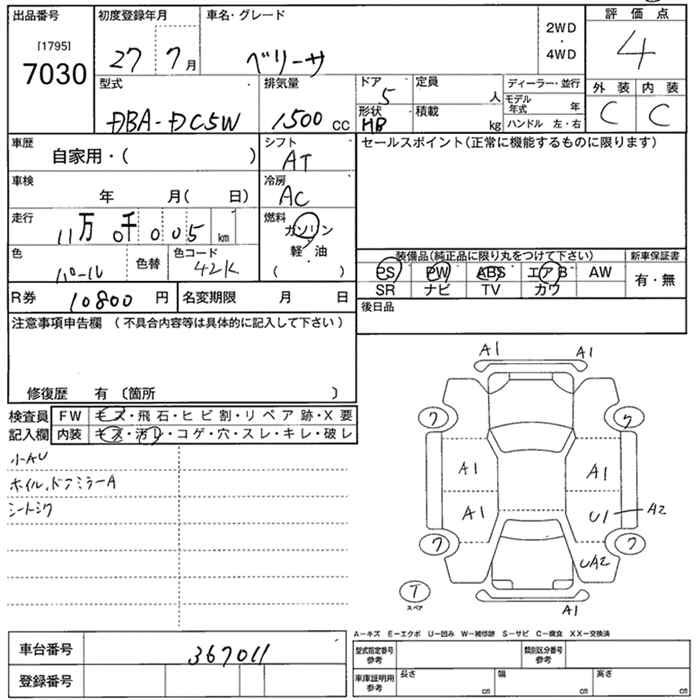 出品番号 初度登録年月 車名・グレード 2WD・4WD 評価点
[1795]
7030 27 7月 ベリーサ 4
型式 排気量 ドア 定員 ディーラー・並行 外装 内装
DBA-DC5W 1500cc 5 人 モデル年式 年 C C
形状 積載
HB kg ハンドル 左・右
車歴 シフト セールスポイント(正常に機能するものに限ります)
自家用・( ) AT
車検 冷房
年 月( 日) AC
走行 燃料
11万 0千 0 0 5 km ガソリン
軽・油
( )
色 色替 色コード 装備品(純正品に限り丸をつけて下さい) 新車保証書
パール 42K PS PW ABS エアB AW 有・無
SR ナビ TV カワ
R券 10800円 名変期限 月 日 後日品
注意事項申告欄(不具合内容等は具体的に記入して下さい)
修復歴 有〔箇所 〕
検査員 FW キズ・飛石・ヒビ割・リペア跡・X要
記入欄 内装 キズ・汚レ・コゲ・穴・スレ・キレ・破レ
小AU
ホイル、ドアミラーA
シートシワ
A1 A1
7 5
A1 A1
A1 U1 A2
7 7
UA2
T
スペア
A1
A−キズ E−エクボ U−凹み W−補修跡 S−サビ C−腐食 XX−交換済
車台番号 367011 型式指定番号 参考 類別区分番号 参考
登録番号 車庫証明用 参考 長さ cm 幅 cm 高さ cm